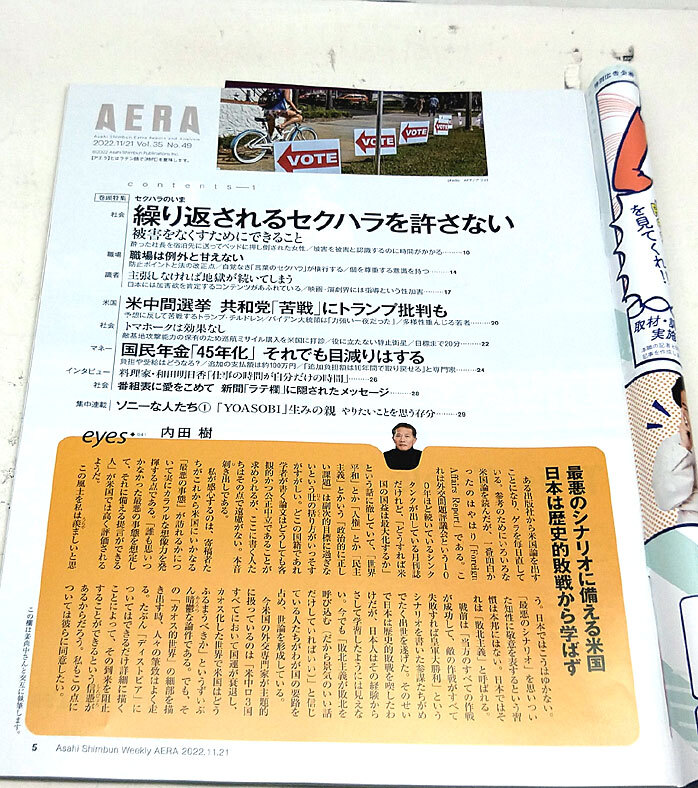 AERA
Asahi Shimbun Extra Report and Analysis
2022.11/21 Vol.35 No.49
©2022 Asahi Shimbun Publications Inc.
VOTE
VOTE
VOTE
VOTE
contents—1
巻頭特集 セクハラのいま
社会 繰り返されるセクハラを許さない
被害をなくすためにできること
酔った社長を宿泊先に送ってベッドに押し倒された女性/被害を被害と認識するのに時間がかかる 10
職場 職場は例外と甘えない
防止ポイントと法の改正点/自覚なき「言葉のセクハラ」が横行する/個を尊重する意識を持つ 14
識者 主張しなければ地獄が続いてしまう
日本には加害欲を肯定するコンテンツがあふれている/映画・演劇界には指導という性加害 17
米国 米中間選挙 共和党「苦戦」にトランプ批判も
予想に反して苦戦するトランプ・チルドレン/バイデン大統領は「力強い一夜だった」/多様性重んじる若者 20
社会 トマホークは効果なし
敵基地攻撃能力の保有のため巡航ミサイル購入を米国に打診/役に立たない静止衛星/目標まで20分 22
マネー 国民年金「45年化」それでも目減りはする
負担や受給はどうなる?/追加の支払額は約100万円/「追加負担額は10年間で取り戻せる」と専門家 24
インタビュー 料理家・和田明日香「仕事の時間が自分だけの時間」 26
社会 番組表に愛をこめて 新聞「ラテ様」に隠されたメッセージ 28
集中連載 ソニーな人たち① 「YOASOBI」生みの親 やりたいことを思う存分 29
eyes 内田 樹
最悪のシナリオに備える米国
日本は歴史的敗戦から学ばず
ある出版社から米国論を出す
ことになり、ゲラを毎日直して
いる。参考のためにいろいろな
米国論を読んだが、一番面白か
ったのはやはり「Foreign
Affairs Report」である。こ
れは外交問題評議会という10
0年ほど続いているシンク
タンクが出している月刊誌
だけれど、「どうすれば米
国の国益は最大化するか」
という話に徹していて、「世界
平和」とか「人権」とか「民主
主義」とかいう「政治的に正し
い課題」は副次的目標に過ぎな
いという肚の括り方がいっそす
がすがしい。どこの国籍であれ
学者が書く論文はどうしても客
観的かつ公正中立であることが
求められるが、ここに書く人た
ちはその点で遠慮がない。本音
剥き出しである。
私が感心するのは、寄稿者た
ちがこれから米国にいかなる
「最悪の事態」が訪れるかにつ
いて実にカラフルな想像力を発
揮する点である。「誰も思いつ
かなかった最悪の事態を想定し
て、それに備える提言ができる
人」が米国では高く評価される
ようだ。
この風土を私は羨ましいと思
う。日本ではこうはゆかない。
「最悪のシナリオ」を思いつい
た知性に敬意を表するという習
慣は本邦にはない。日本ではそ
れは「敗北主義」と呼ばれる。
戦前は、「当方のすべての作戦
が成功して、敵の作戦がすべて
失敗すれば皇軍大勝利」という
シナリオを書いた参謀たちがめ
でたく出世を遂げた。そのせい
で日本は歴史的敗戦を喫したわ
けだが、日本人はその経験から
さして学習したようには見えな
い。今でも、「敗北主義が敗北を
呼び込む」「だから景気のいい話
だけしていればいい」と信じ
ている人たちがわが国の要路を
占め、世論を形成している。
今米国の外交専門家が主題的
に扱っているのは「米中ロ3国
すべてにおいて国運が衰退し、
カオス化した世界で米国はどう
ふるまうべきか」というずいぶ
ん暗鬱な論件である。でも、そ
の「カオス的世界」の細部を描
き出す時、人々の筆致はよく走
る。たぶん、「ディストピア」に
ついてはできるだけ詳細に描く
ことによって、その到来を阻止
することができるという信憑が
あるからだろう。私もこの点に
ついては彼らに同意したい。
この欄は姜尚中さんと交互に執筆します。
5 Asahi Shimbun Weekly AERA 2022.11.21
を見てくれ!!
取材・
実施